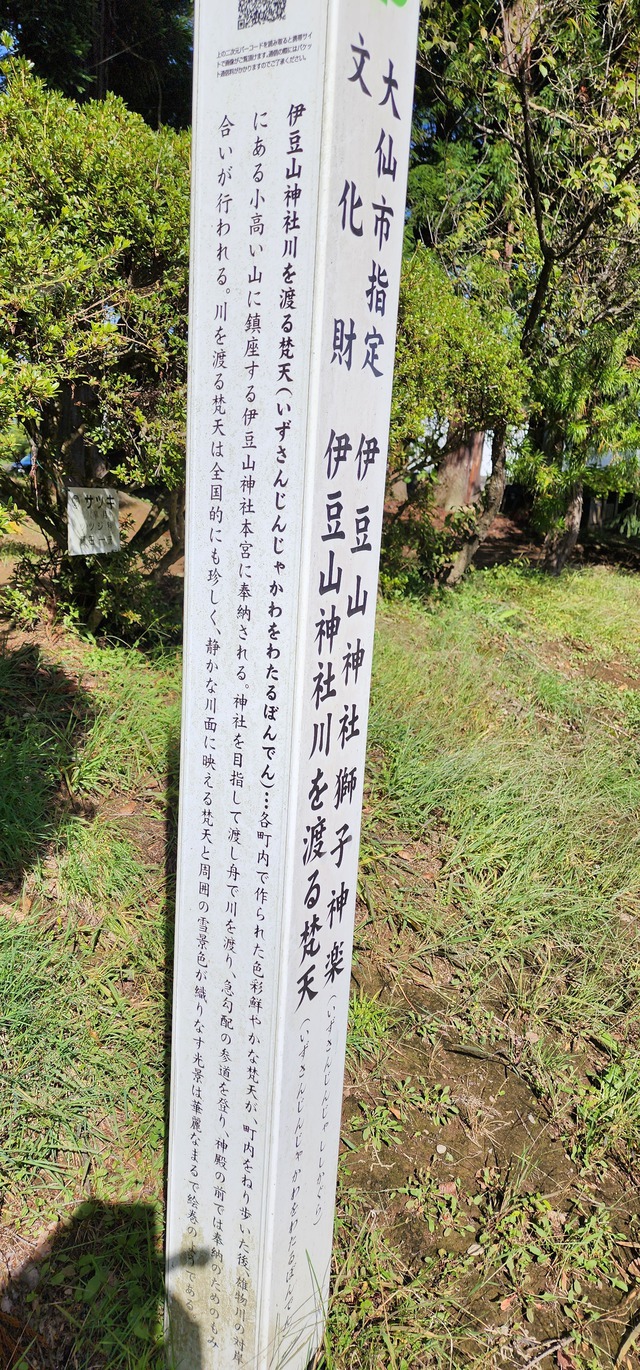 上の二次元バーコードを読み取ると携帯サイ
トで映像がご覧頂けます。通信の際にはパケッ
ト通信料がかかりますのでご了承ください。
大仙市指定
文化財
伊豆山神社獅子神楽(いずさんじんじゃ ししかぐら)
伊豆山神社川を渡る梵天(いずさんじんじゃ かわをわたるぼんでん)
伊豆山神社川を渡る梵天(いずさんじんじゃかわをわたるぼんでん)…各町内で作られた色彩鮮やかな梵天が、町内をねり歩いた後、雄物川の対岸
にある小高い山に鎮座する伊豆山神社本宮に奉納される。神社を目指して渡し舟で川を渡り、急勾配の参道を登り、神殿の前では奉納のためのもみ
合いが行われる。川を渡る梵天は全国的にも珍しく、静かな川面に映える梵天と周囲の雪景色が織りなす光景は華麗なまるで絵巻のようである。
サツキ